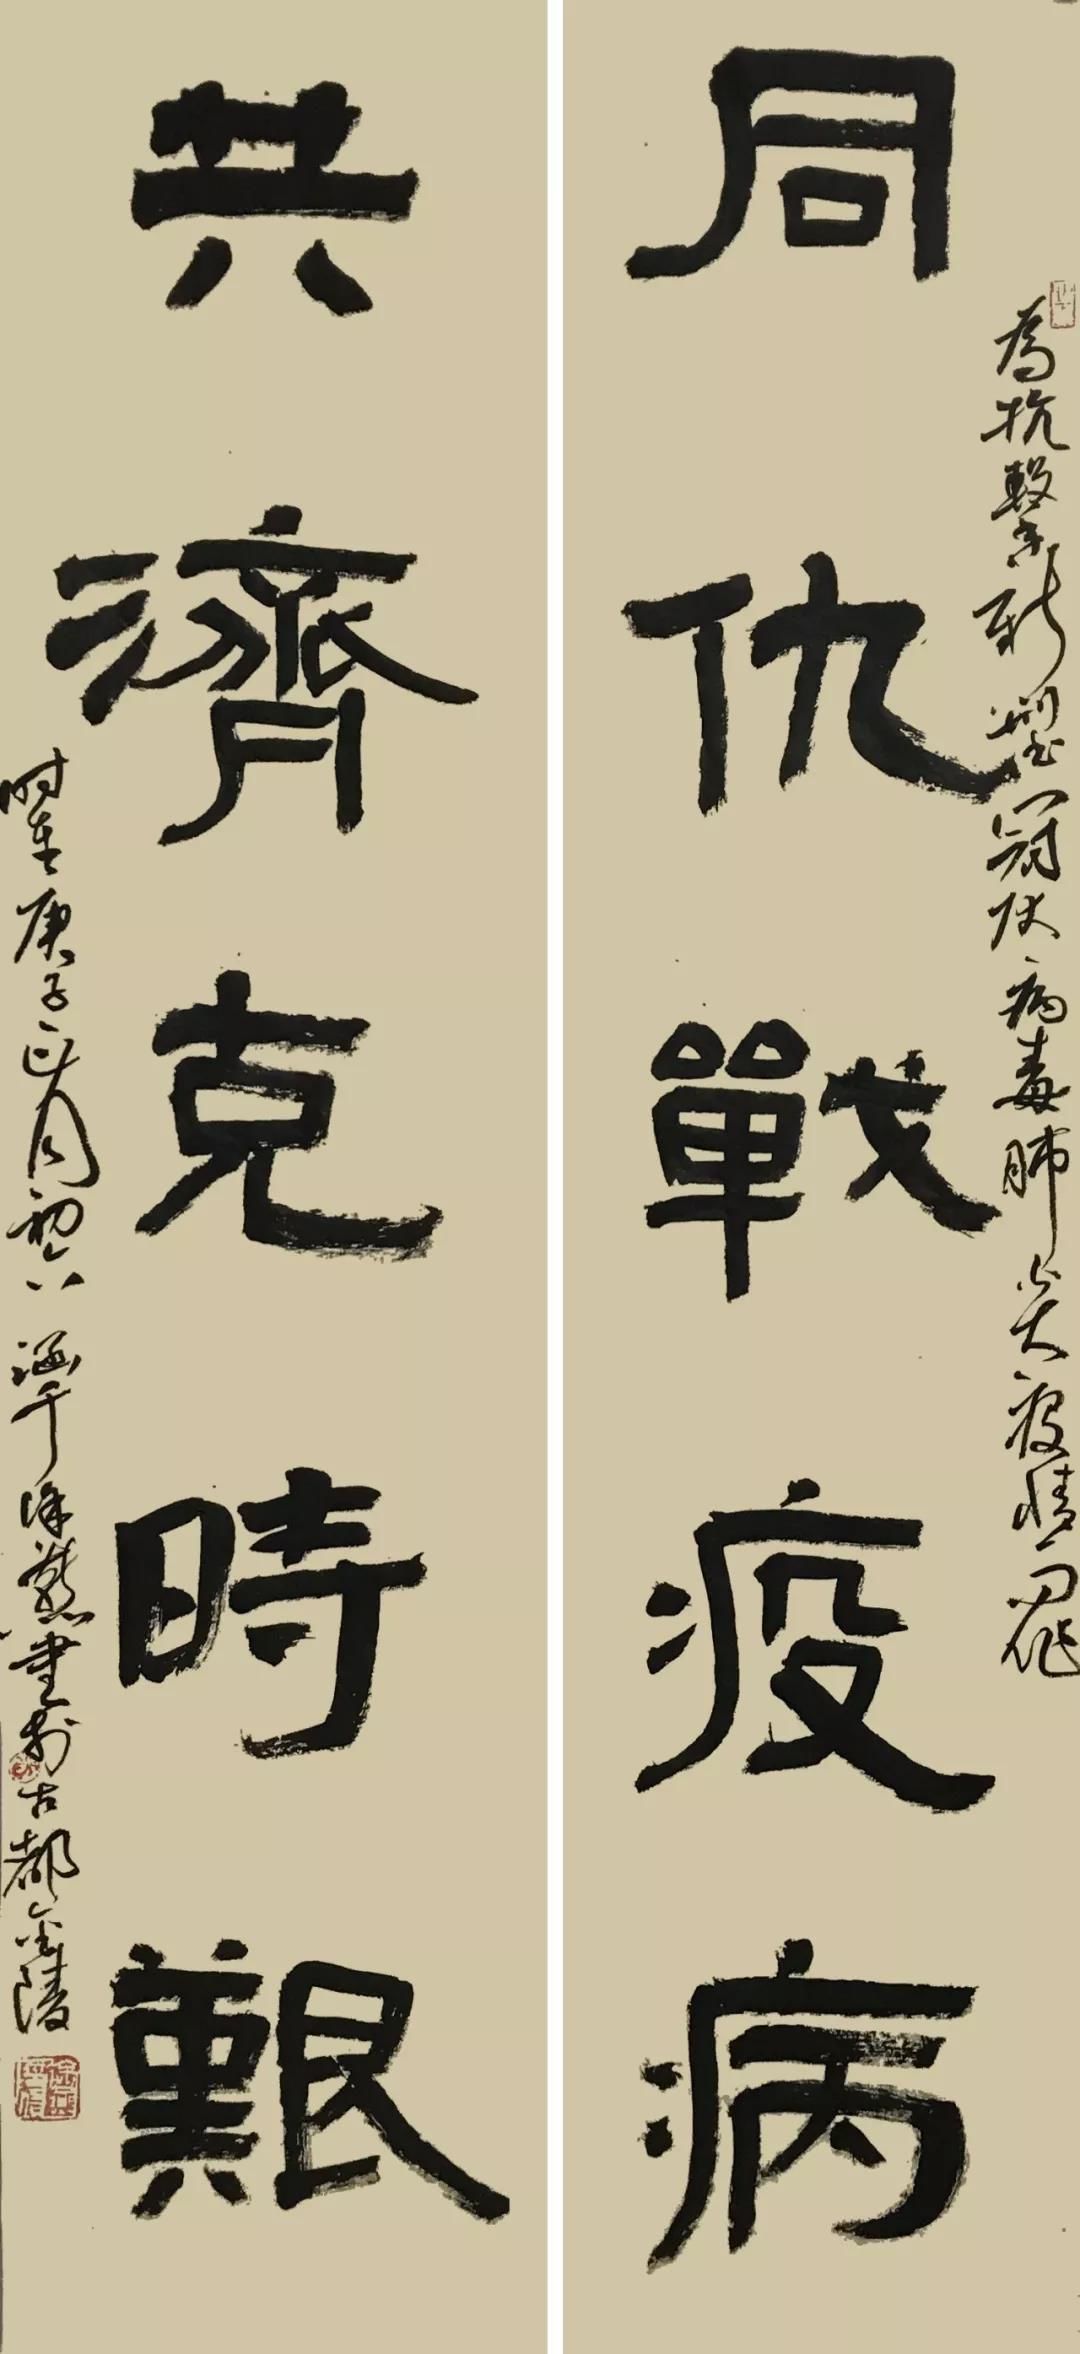 同仇戰疫病
為抗擊新型冠狀病毒肺炎疫情而作
共濟克時艱
時在庚子正月初六
徐燕書於古都金陵